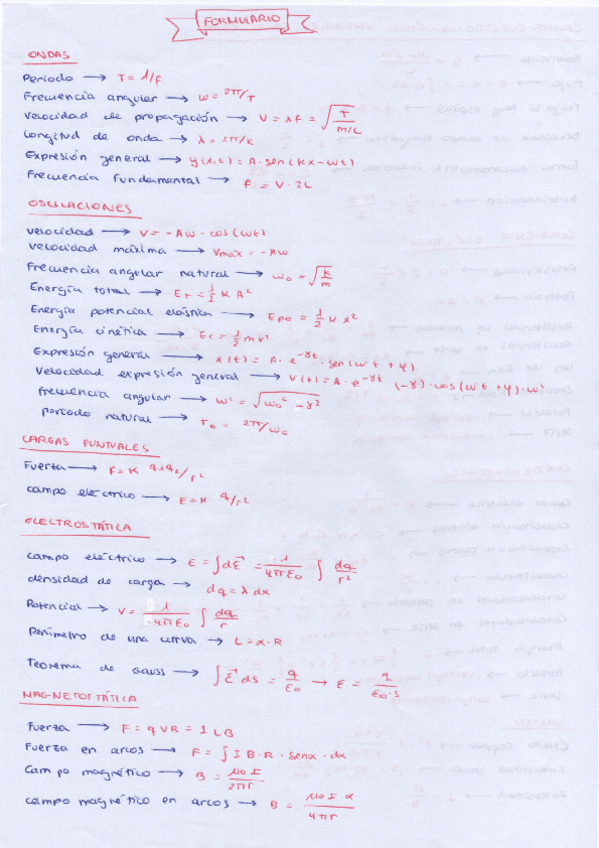 FORMULARIO
ONDAS
Periodo → T = 1/f
Frecuencia angular → ω = 2π/T
velocidad de propagación → V = λf = √(T / m/L)
longitud de onda → λ = 2π/k
Expresión general → y(x,t) = A·sen(kx-ωt)
Frecuencia fundamental → f = V·2L
OSCILACIONES
velocidad → V = -Aω·cos(ωt)
velocidad máxima → Vmáx = -Aω
Frecuencia angular natural → ω₀ = √(k/m)
Energía total → E_T = 1/2 K A²
Energía potencial elástica → Epe = 1/2 k x²
Energía cinética → Ec = 1/2 m v²
Expresión general → x(t) = A·e^(-γt)·sen(ω't + φ)
Velocidad expresión general → V(t) = A·e^(-γt) (-γ)·cos(ω't + φ)·ω'
Frecuencia angular → ω' = √(ω₀² - γ²)
periodo natural → T₀ = 2π/ω₀
CARGAS PUNTUALES
Fuerza → F = K q₁q₂/r²
campo eléctrico → E = K q/r²
ELECTROSTÁTICA
campo eléctrico → E = ∫dE⃗ = 1/4πε₀ ∫ dq/r²
densidad de carga → dq = λ dx
Potencial → V = 1/4πε₀ ∫ dq/r
Perímetro de una curva → L = α·R
Teorema de Gauss → ∫E⃗ ds = q/ε₀ → E = q/ε₀·s
MAGNETOSTÁTICA
Fuerza → F = qVB = ILB
Fuerza en arcos → F = ∫ I B·R·senα·dα
Campo magnético → B = μ₀I/2πr
campo magnético en arcos → B = μ₀I α/4πr